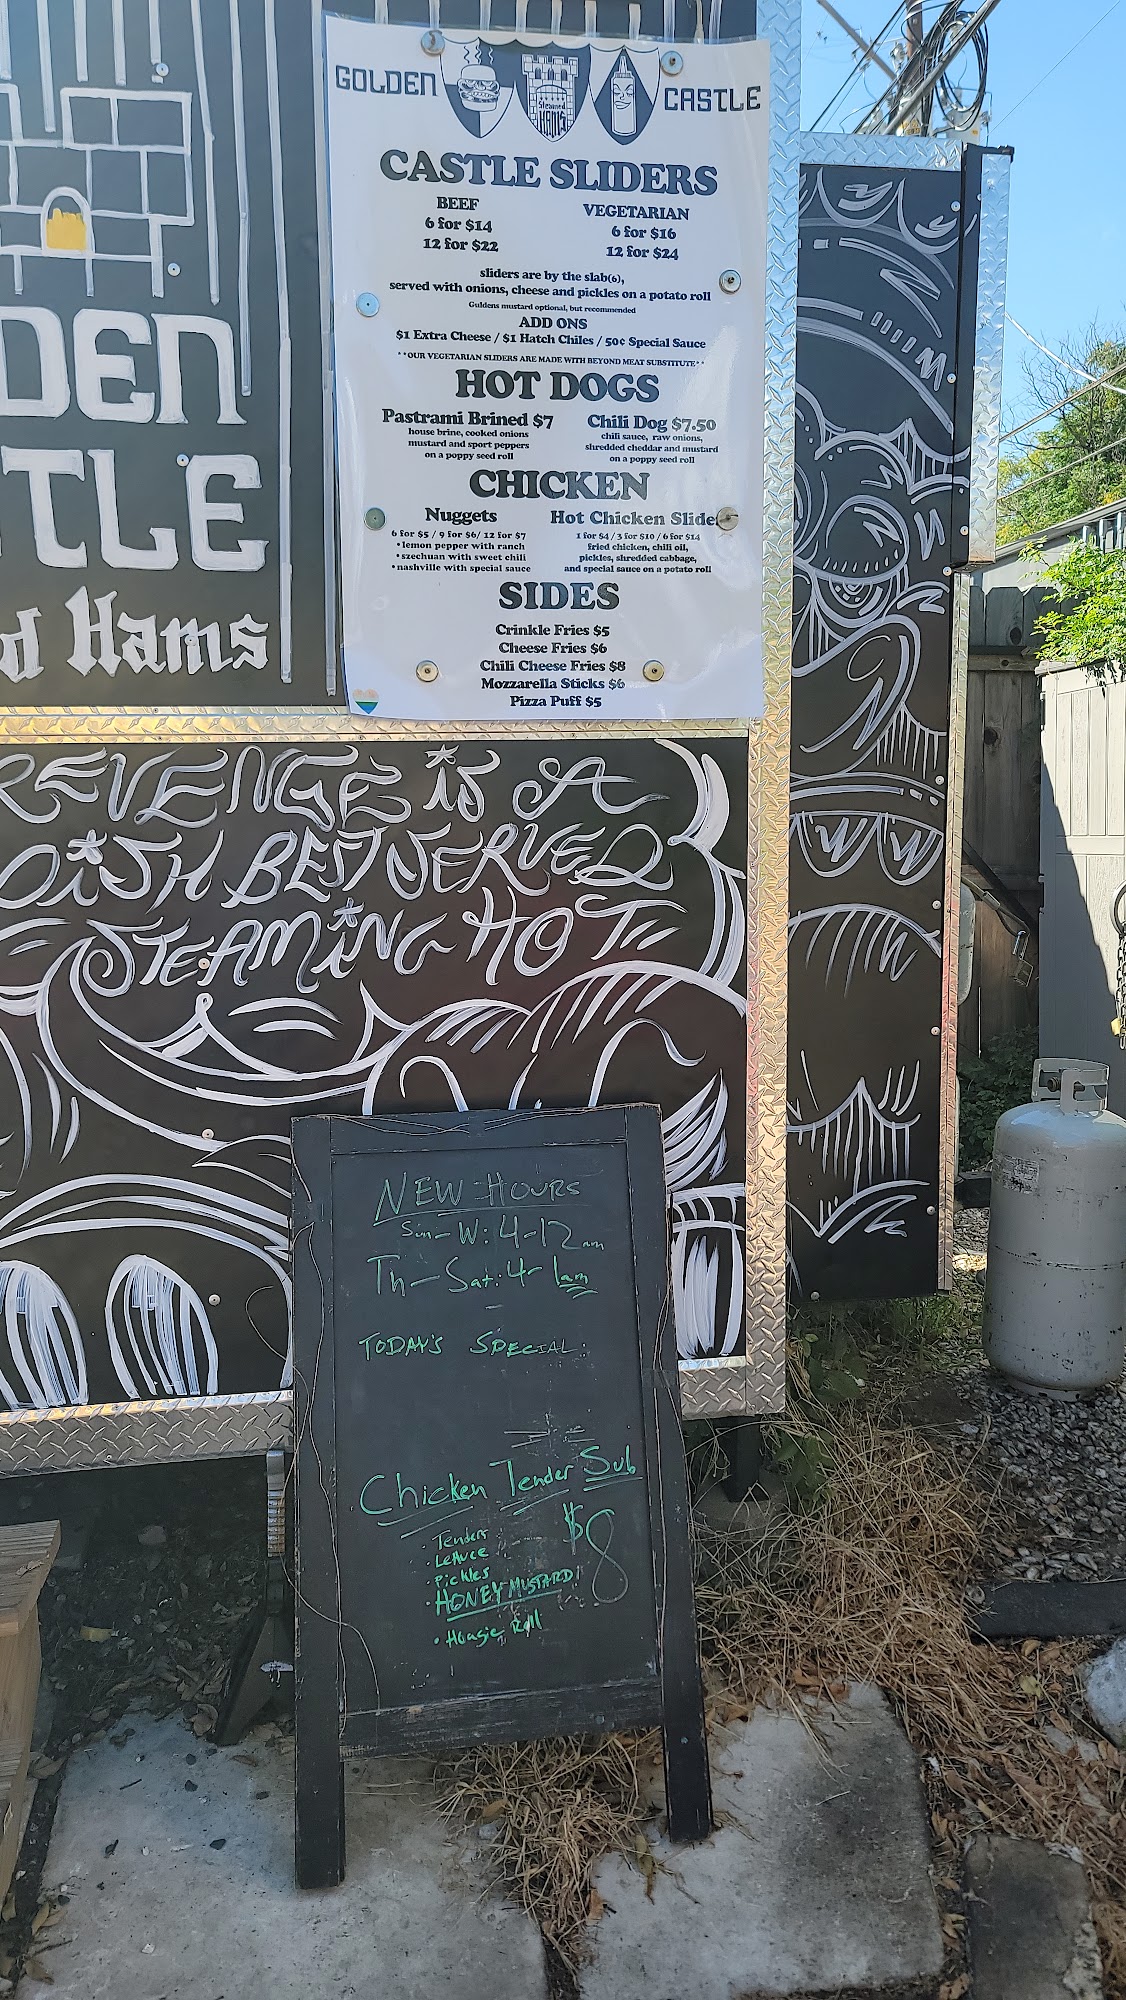 GOLDEN
CASTLE
Steamed
HAMS
CASTLE SLIDERS
BEEF
6 for $14
12 for $22
VEGETARIAN
6 for $16
12 for $24
sliders are by the slab(6),
served with onions, cheese and pickles on a potato roll
Guldens mustard optional, but recommended
ADD ONS
$1 Extra Cheese / $1 Hatch Chiles / 50¢ Special Sauce
**OUR VEGETARIAN SLIDERS ARE MADE WITH BEYOND MEAT SUBSTITUTE**
HOT DOGS
Pastrami Brined $7
house brine, cooked onions
mustard and sport peppers
on a poppy seed roll
Chili Dog $7.50
chili sauce, raw onions,
shredded cheddar and mustard
on a poppy seed roll
CHICKEN
Nuggets
6 for $5 / 9 for $6/ 12 for $7
•lemon pepper with ranch
•szechuan with sweet chili
•nashville with special sauce
Hot Chicken Slide
1 for $4 / 3 for $10 / 6 for $14
fried chicken, chili oil,
pickles, shredded cabbage,
and special sauce on a potato roll
SIDES
Crinkle Fries $5
Cheese Fries $6
Chili Cheese Fries $8
Mozzarella Sticks $6
Pizza Puff $5
DEN
TLE
d Hams
REVENGE iS A
DiSH BEST SERVED
STEAMiNG HOT
NEW HOURS
Sun-W: 4-12am
Th-Sat: 4-1am
TODAY'S SPECIAL:
Chicken Tender Sub
$8
· Tenders
· Lettuce
· Pickles
· HONEY MUSTARD!!
· Hoagie Roll